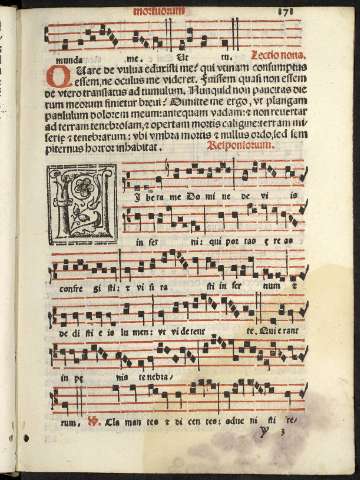 mortuorum 171
munda me. Ut tu. Lectio nona.
Quare de vulua eduxisti me? qui vtinam consumptus
essem, ne oculus me videret. Fuissem quasi non essem
de vtero translatus ad tumulum. Nunquid non paucitas die
rum meorum finietur breui? Dimitte me ergo, vt plangam
paululum dolorem meum: antequam vadam: ⁊ non reuertar
ad terram tenebrosam, ⁊ opertam mortis caligine: terram mi
serie ⁊ tenebrarum: vbi vmbra mortis ⁊ nullus ordo, sed sem
piternus horror inhabitat. Responsorium.
Libera me Do mi ne de vi is
in fer ni: qui por tas ę re as
confre gi sti: ⁊ vi si ta sti in fer num ⁊
de di sti e is lu men: vt vi de rent te. Qui erant
in pę nis te nebra/
rum. ℣. Cla man tes ⁊ di cen tes: adue ni sti re/
y 3